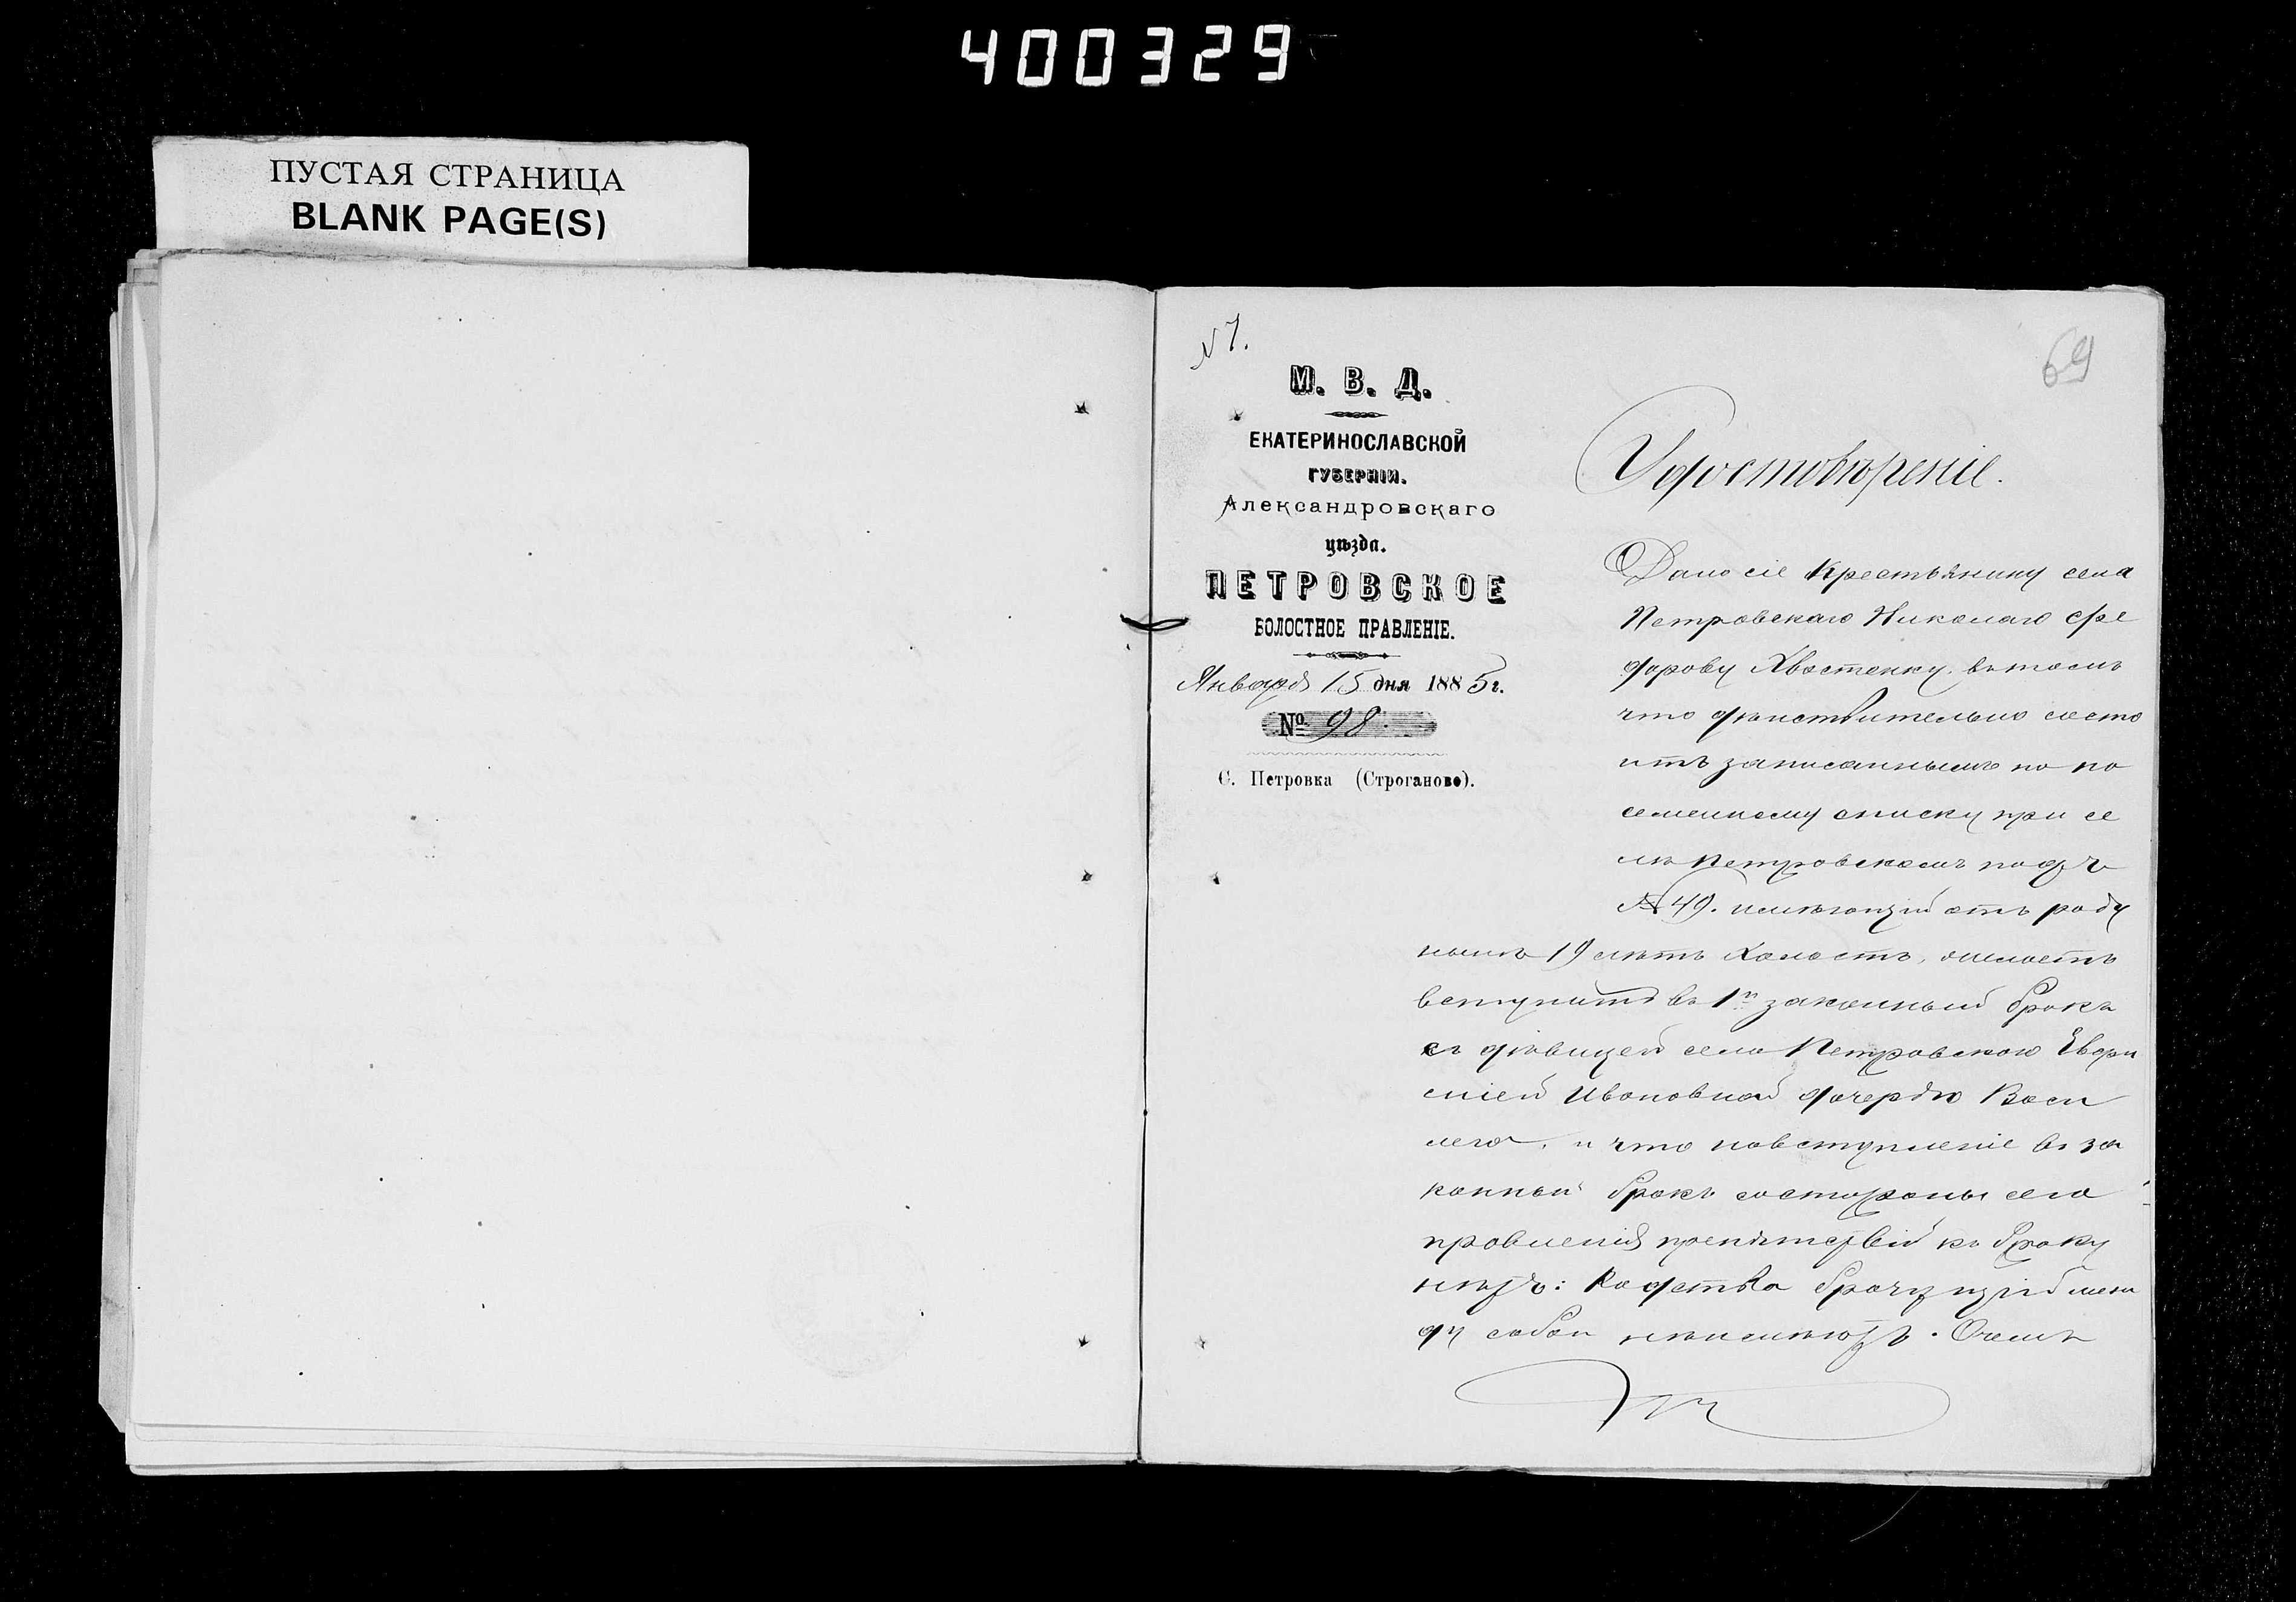 400329
ПУСТАЯ СТРАНИЦА
BLANK PAGE(S)
N 7.
69
М. В. Д.
ЕКАТЕРИНОСЛАВСКОЙ
ГУБЕРНІИ.
Александровскаго
уѣзда.
ПЕТРОВСКОЕ
ВОЛОСТНОЕ ПРАВЛЕНІЕ.
Января 15 дня 1885 г.
№ 98.
С. Петровка (Строганово).
Удостовѣреніе.
Дано сіе Крестьянину села
Петровскаго Николаю Фе
дорову Хвостенку, въ томъ
что дѣйствительно состо
итъ записаннымъ по по
семейному списку при се
лѣ Петровскомъ подъ
№ 49. имѣющій отъ роду
нынѣ 19 лѣтъ холостъ, желаетъ
вступить въ 1й законный бракъ
съ дѣвицей села Петровскаго Евфри
сніей Ивановной дочерью Васи
лега, и что на вступленіе въ за
конный бракъ со стороны сего
правленія препятствій къ браку
нѣтъ: Родства брачущіиб меж
ду собой неимѣютъ. О чемъ